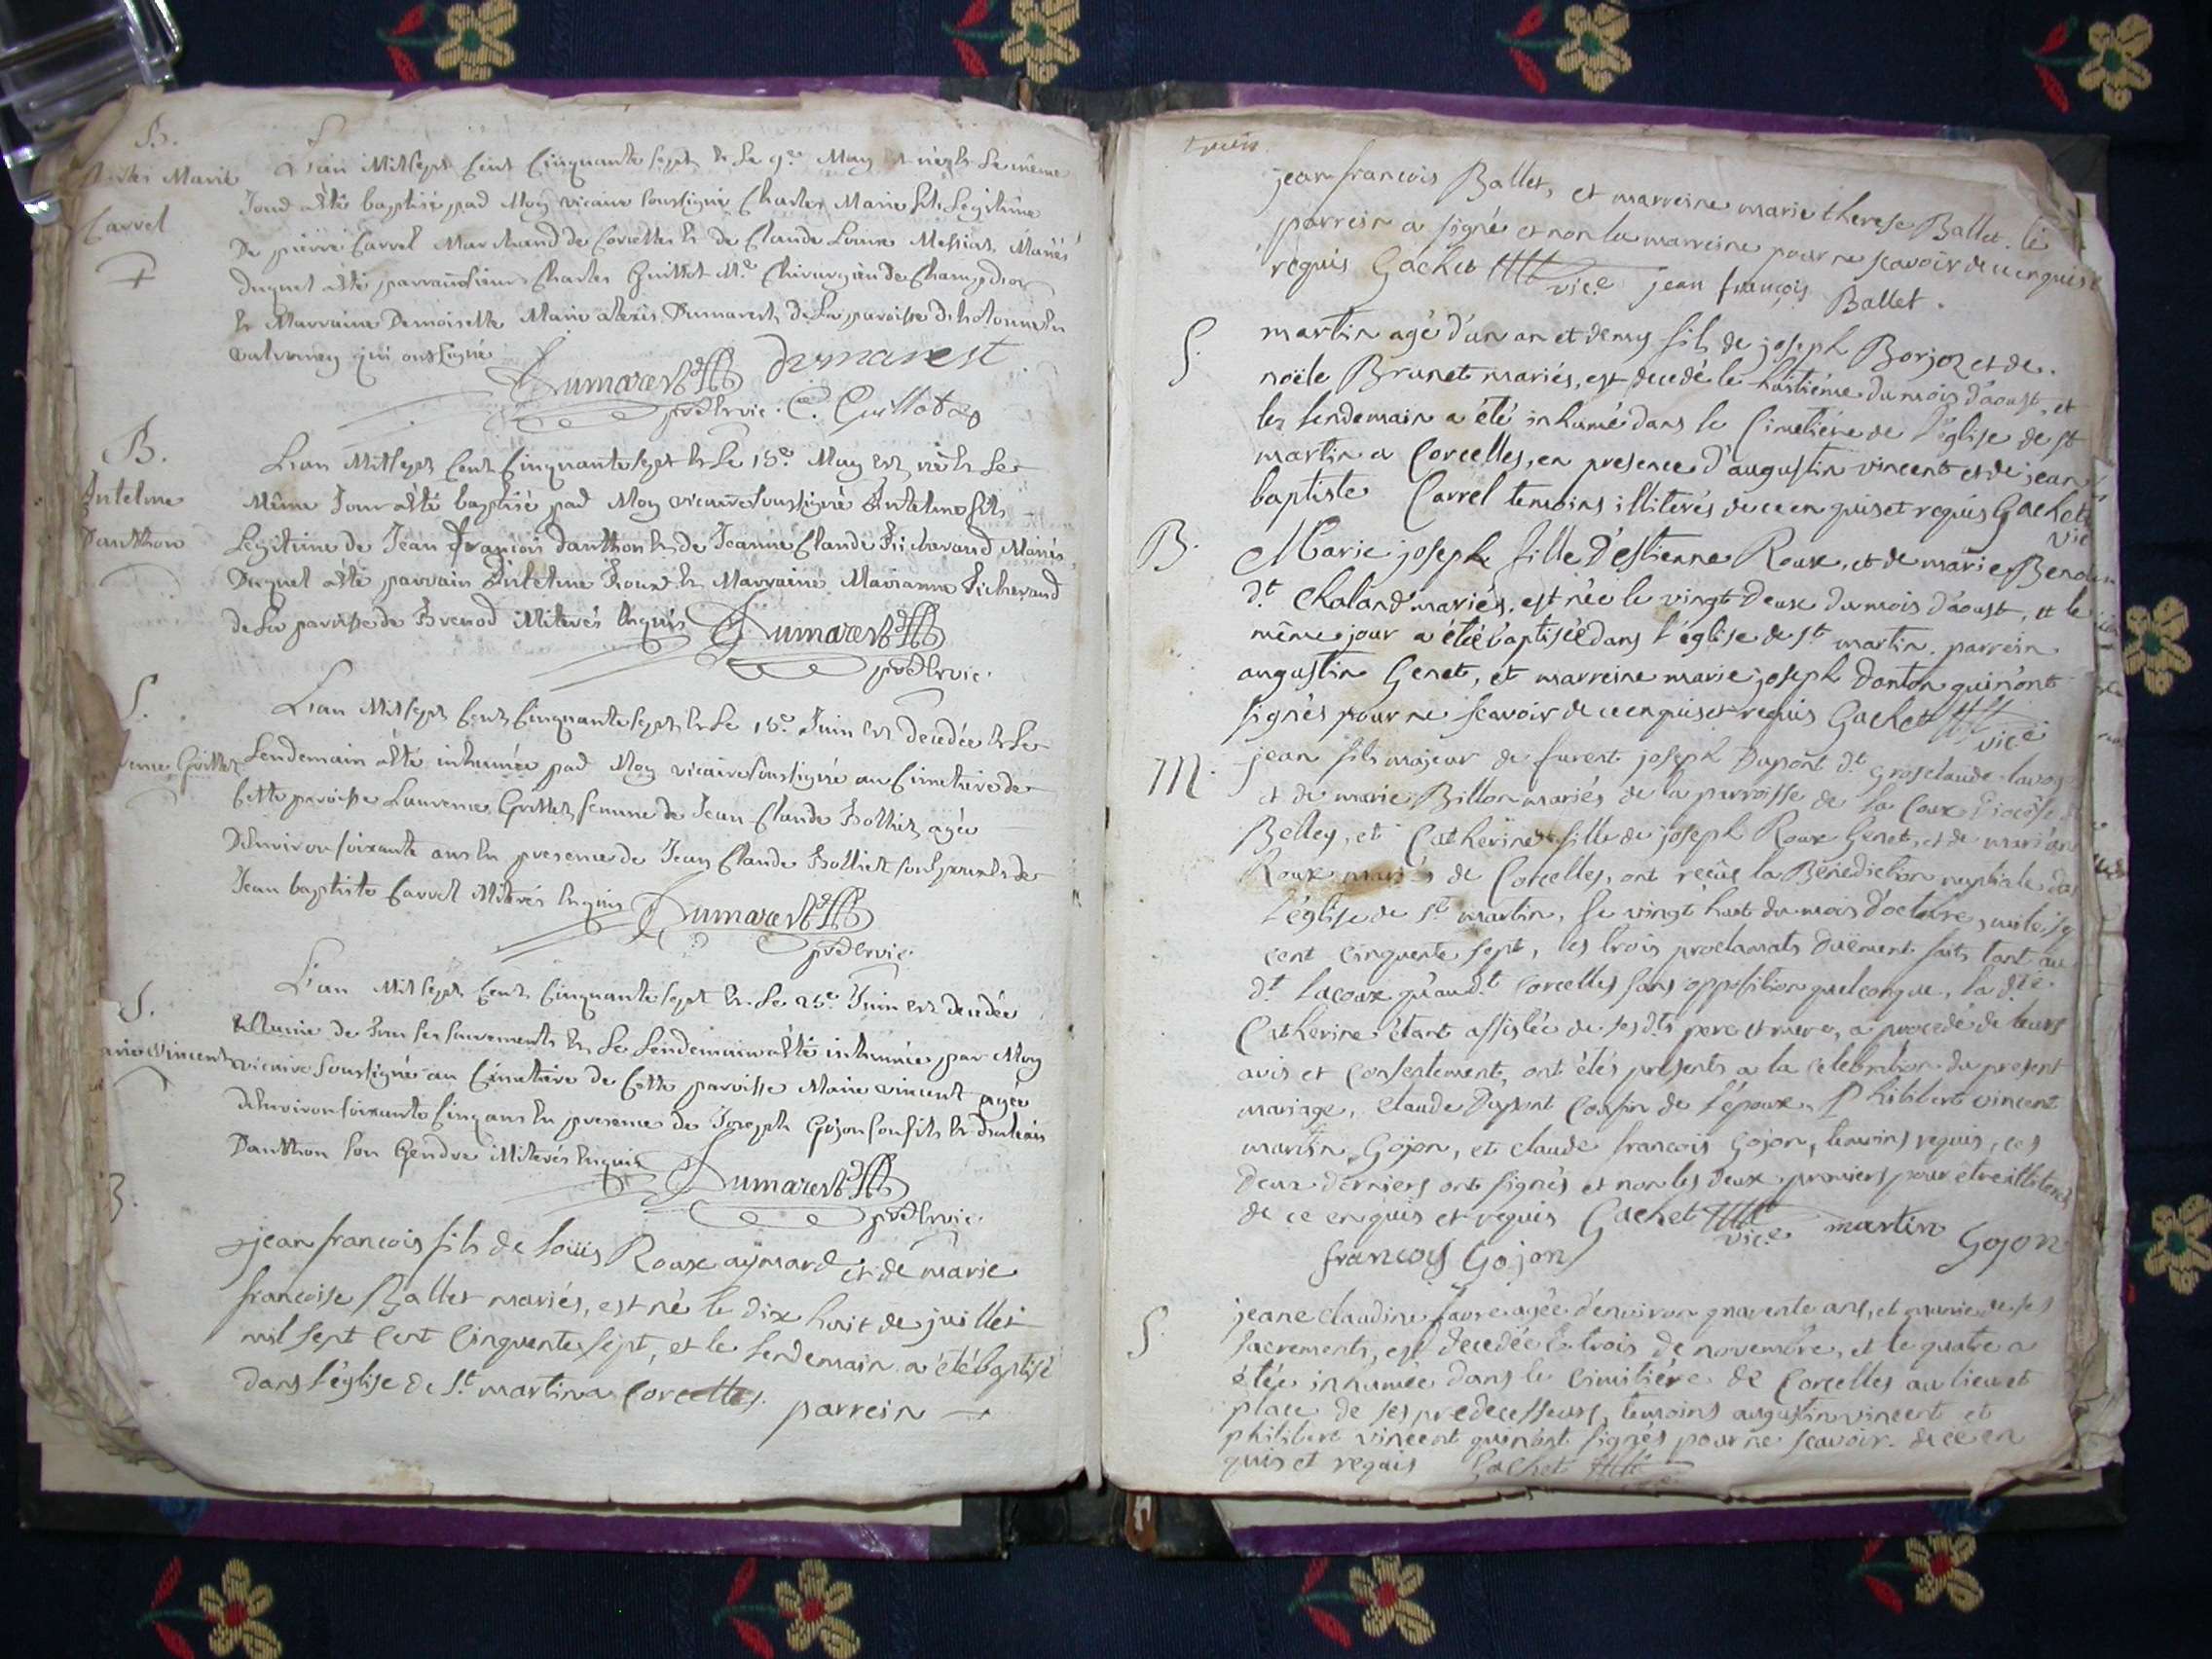 B.
Marie
Carrel
L'an Mil sept Cent Cinquante sept & Le 9e May est né & Le même
Jour a été baptisé par Moy vicaire soussigné Charles Marie fils Légitime
De pierre Carrel Marchand de Corcelles & de Claude Louise Messiat Mariés
Duquel a été parrain sieur Charles Guillot Me Chirurgien De Champdor
& Marraine Demoiselle Marie Dumarest de La paroisse de hotonne en
valromey qui ont signé
Dumarest dumarest
C. Guillot
B.
Antelme
Danthon
L'an Mil sept Cent Cinquante sept & Le 15e May est né & Le
Même Jour a été baptisé par Moy vicaire soussigné Antelme fils
Légitime de Jean François danthon & de Jeanne Claude Richerand Mariés
Duquel a été parrain Antelme Roux & Marraine Marianne Richerand
de La paroisse de Brenod illiterés Enquis
Dumarest
S.
Grittet
L'an Mil sept Cent Cinquante sept & Le 15e Juin est decedée & Le
Lendemain a été inhumée par Moy vicaire soussigné au Cimetiere de
Cette paroisse Laurence Grittet femme de Jean Claude Bolliet agée
D'Environ soixante ans En presence de Jean Claude Bolliet son & de
Jean baptiste Carrel illiterés Enquis
Dumarest
S.
Marie Vincent
L'an Mil sept Cent Cinquante sept & Le 25e Juin est decedée
Munie de Tous ses sacrements & Le Lendemain a été inhumée par Moy
vicaire soussigné au Cimetiere de Cette paroisse Marie vincent agée
D'Environ soixante Cinq ans En presence de Joseph Gojon son fils &
Danthon son Gendre illiterés Enquis
Dumarest
B.
jean francois fils de loüis Roux aymard et de marie
francoise Ballet mariés, est né le dix huit de juillet
mil sept cent cinquente sept, et le lendemain a été baptisé
dans l'église de St martin a Corcelles. parrein
jean francois Ballet, et marreine marie therese Ballet. le
parrein a signé et non la marreine pour ne scavoir de ce enquise
requis Gachet vice jean françois Ballet.
S.
martin agé d'un an et demy fils de joseph Borjon et de
noële Brunet mariés, est decedé le huitiéme du mois d'aoust, et
le lendemain a été inhumé dans le Cimetiére de l'église de St
martin a Corcelles, en presence d'augustin vincent et de jean
baptiste Carrel temoins illiterés de ce enquis et requis Gachet
vic
B.
Marie joseph fille d'estienne Roux, et de marie
dt Chaland mariés, est née le vingt deux du mois d'aoust, et le
même jour a étée baptisée dans l'église de St martin. parrein
augustin Genet, et marreine marie joseph danton qui n'ont
signés pour ne scavoir de ce enquis et requis Gachet
vice
M.
jean fils majeur de furent joseph Dupont dt grosclaude
et de marie Billon mariés de la parroisse de la Coux Diocése de
Belley, et Catherine fille de joseph Roux Genet, et de
Roux mariés de Corcelles, ont reçüe la Bénédiction nuptiale dans
l'église de St martin, le vingt huit du mois d'octobre, mile sept
cent cinquente sept, les trois proclamats düement faits tant au
dt lacoux qu'au dt Corcelles sans opposition quelconque, la dte
Catherine étant assistée de ses dts pere et mere, a procedé de leurs
avis et Consentement, ont étés présents a la celebration du present
mariage, claude Dupont Cousin de l'époux, Philibert vincent
martin Gojon, et claude francois Gojon, temoins requis, ces
deux derniers ont signés et non les deux premiers pour etre illiterés
de ce enquis et requis Gachet vice martin Gojon
francoys Gojon
S.
jeane claudine favre agée d'environ quarente ans, et munie de ses
sacrements, est decedée le trois de novembre, et le quatre a
étée inhumée dans le Cimitiére de Corcelles au lieu et
place de ses predecesseurs, temoins augustin vincent et
philibert vincent qui n'ont signés pour ne scavoir. de ce en
quis et requis Gachet